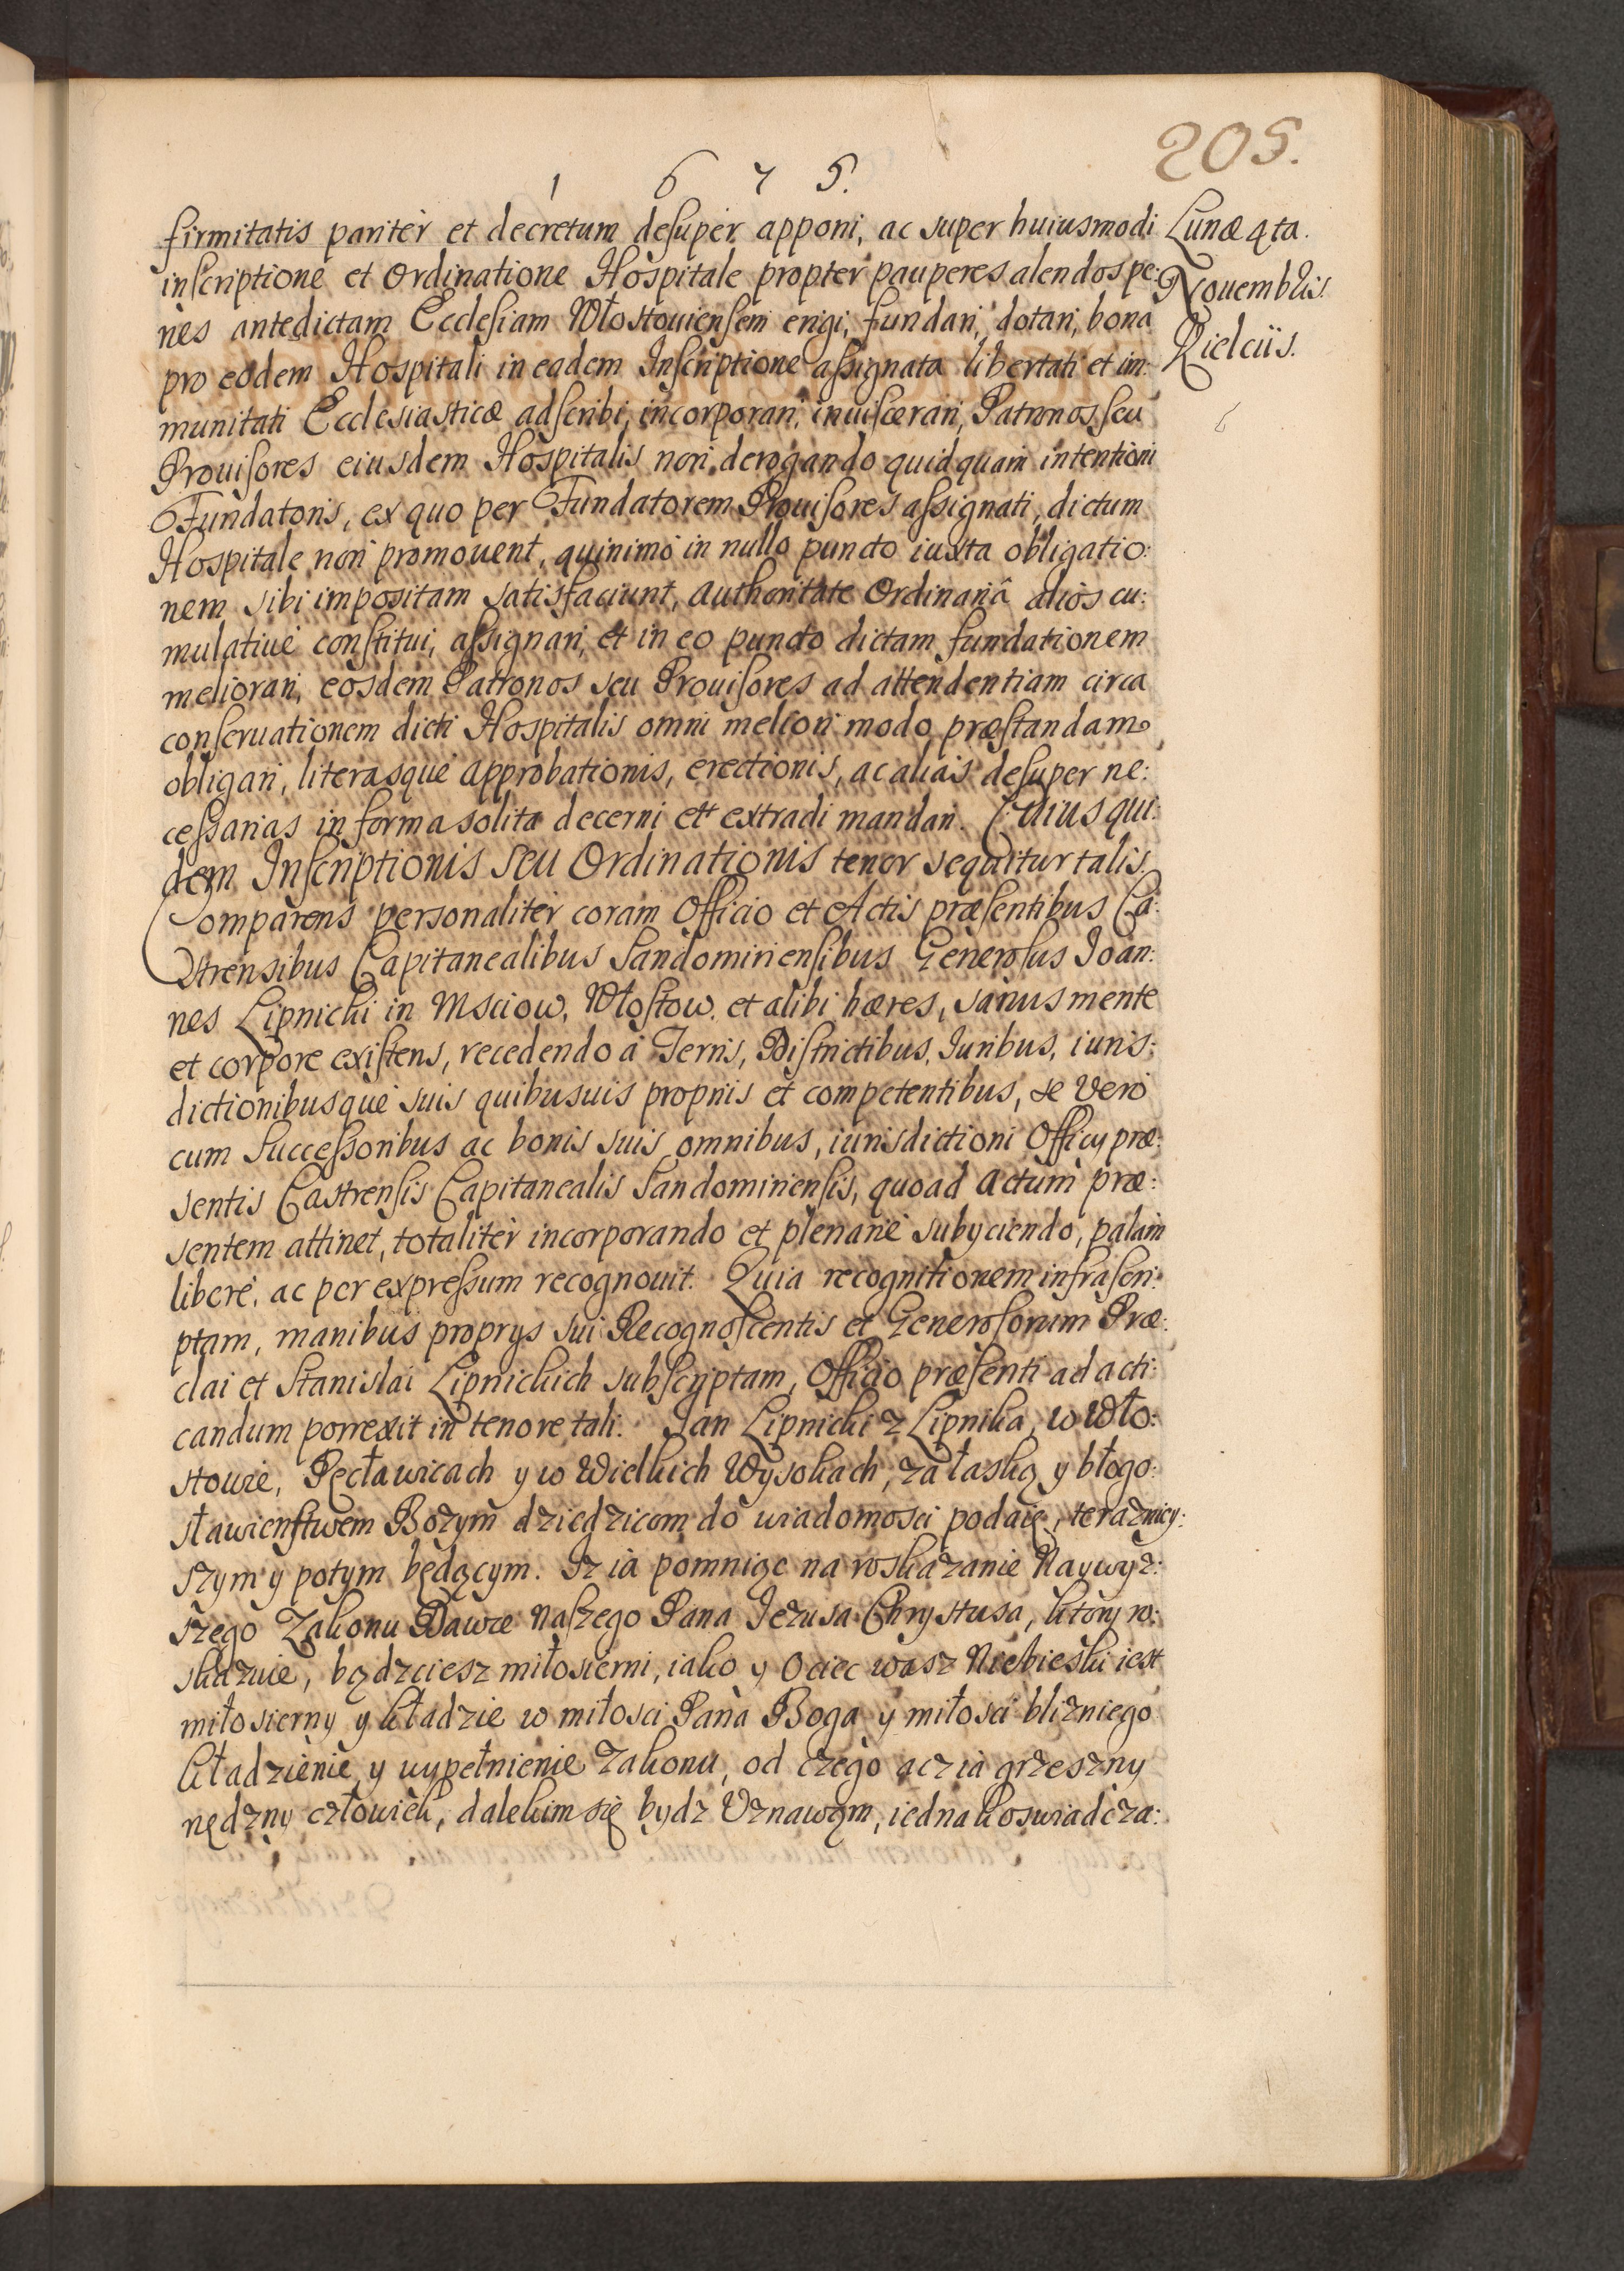 205.
1 6 7 5.
firmitatis paritèr et decretum desupèr apponi, ac super huiusmodi
inscriptione et Ordinatione Hospitale propter pauperes alendos pe:
nes antedictam Ecclesiam Włostouiensem erigi, fundari, dotari, bona
pro eodem Hospitali in eadem Inscriptione assignata libertati et im:
munitati Ecclesiasticæ adscribi, incorporari, inuiscerari, Patronos seu
Prouisores eiusdem Hospitalis non derogando quidquam intentioni
Fundatoris, ex quo per Fundatorem Prouisores assignati, dictum
Hospitale non promouent, quinimò in nullo puncto iuxta obligatio:
nem sibi impositam satisfaciunt, Authoritate Ordinariâ aliòs cu:
mulatiuè constitui, assignari, et in eo puncto dictam fundationem
meliorari, eosdem Patronos seu Prouisores ad attendentiam circa
conseruationem dicti Hospitalis omni meliori modo præstandam
obligari, literasquè approbationis, erectionis, ac aliàs desuper ne:
cessarias in forma solita decerni et extradi mandari. Cuius qui:
dem Inscriptionis seu Ordinationis tenor sequitur talis.
Comparens personalitèr coram Officio et Actis præsentibus Ca:
strensibus Capitanealibus Sandomiriensibus Generosus Ioan:
nes Lipnicki in Msciow, Włostow, et alibi hæres, sanus mente
et corpore existens, recedendo à Terris, Districtibus, Iuribus, iuris:
dictionibusquè suis quibusuis propriis et competentibus, se verò
cum Successoribus ac bonis suis omnibus, iurisdictioni Officij præ:
sentis Castrensis Capitanealis Sandomiriensis, quoad Actum præ:
sentem attinet, totalitèr incorporando et plenariè subijciendo, palàm
liberè, ac per expressum recognouit. Quia recognitionem infrascri:
ptam, manibus proprijs sui Recognoscentis et Generosorum Præ:
clai et Stanislai Lipnickich subscriptam, Officio præsenti ad acti:
candum porrexit in tenore tali. Ian Lipnicki z Lipnika, w Wło:
stowie, Pęcławicach y w Wielkich Wysokach, za łaską y błogo:
sławienstwem Bożym dziedzicom do wiadomosci podaię, terazniey:
szym y potym będącym. Iz ia pomniąc na roskazanie Naywyż:
szego Zakonu Dawce naszego Pana Iezusa Chrystusa, ktory ro:
skazuie, bądzciesz miłosierni, iako y Ociec wasz Niebieski iest
miłosierny y kładzie w miłosci Pana Boga y miłosci blizniego
kładzienie y wypełnienie Zakonu, od czego acz ia grzeszny
nędzny człowiek, dalekim się bydz Uznawam, iednak oswiadcza:
Lunæ 4ta.
Nouembris.
Kielciis.